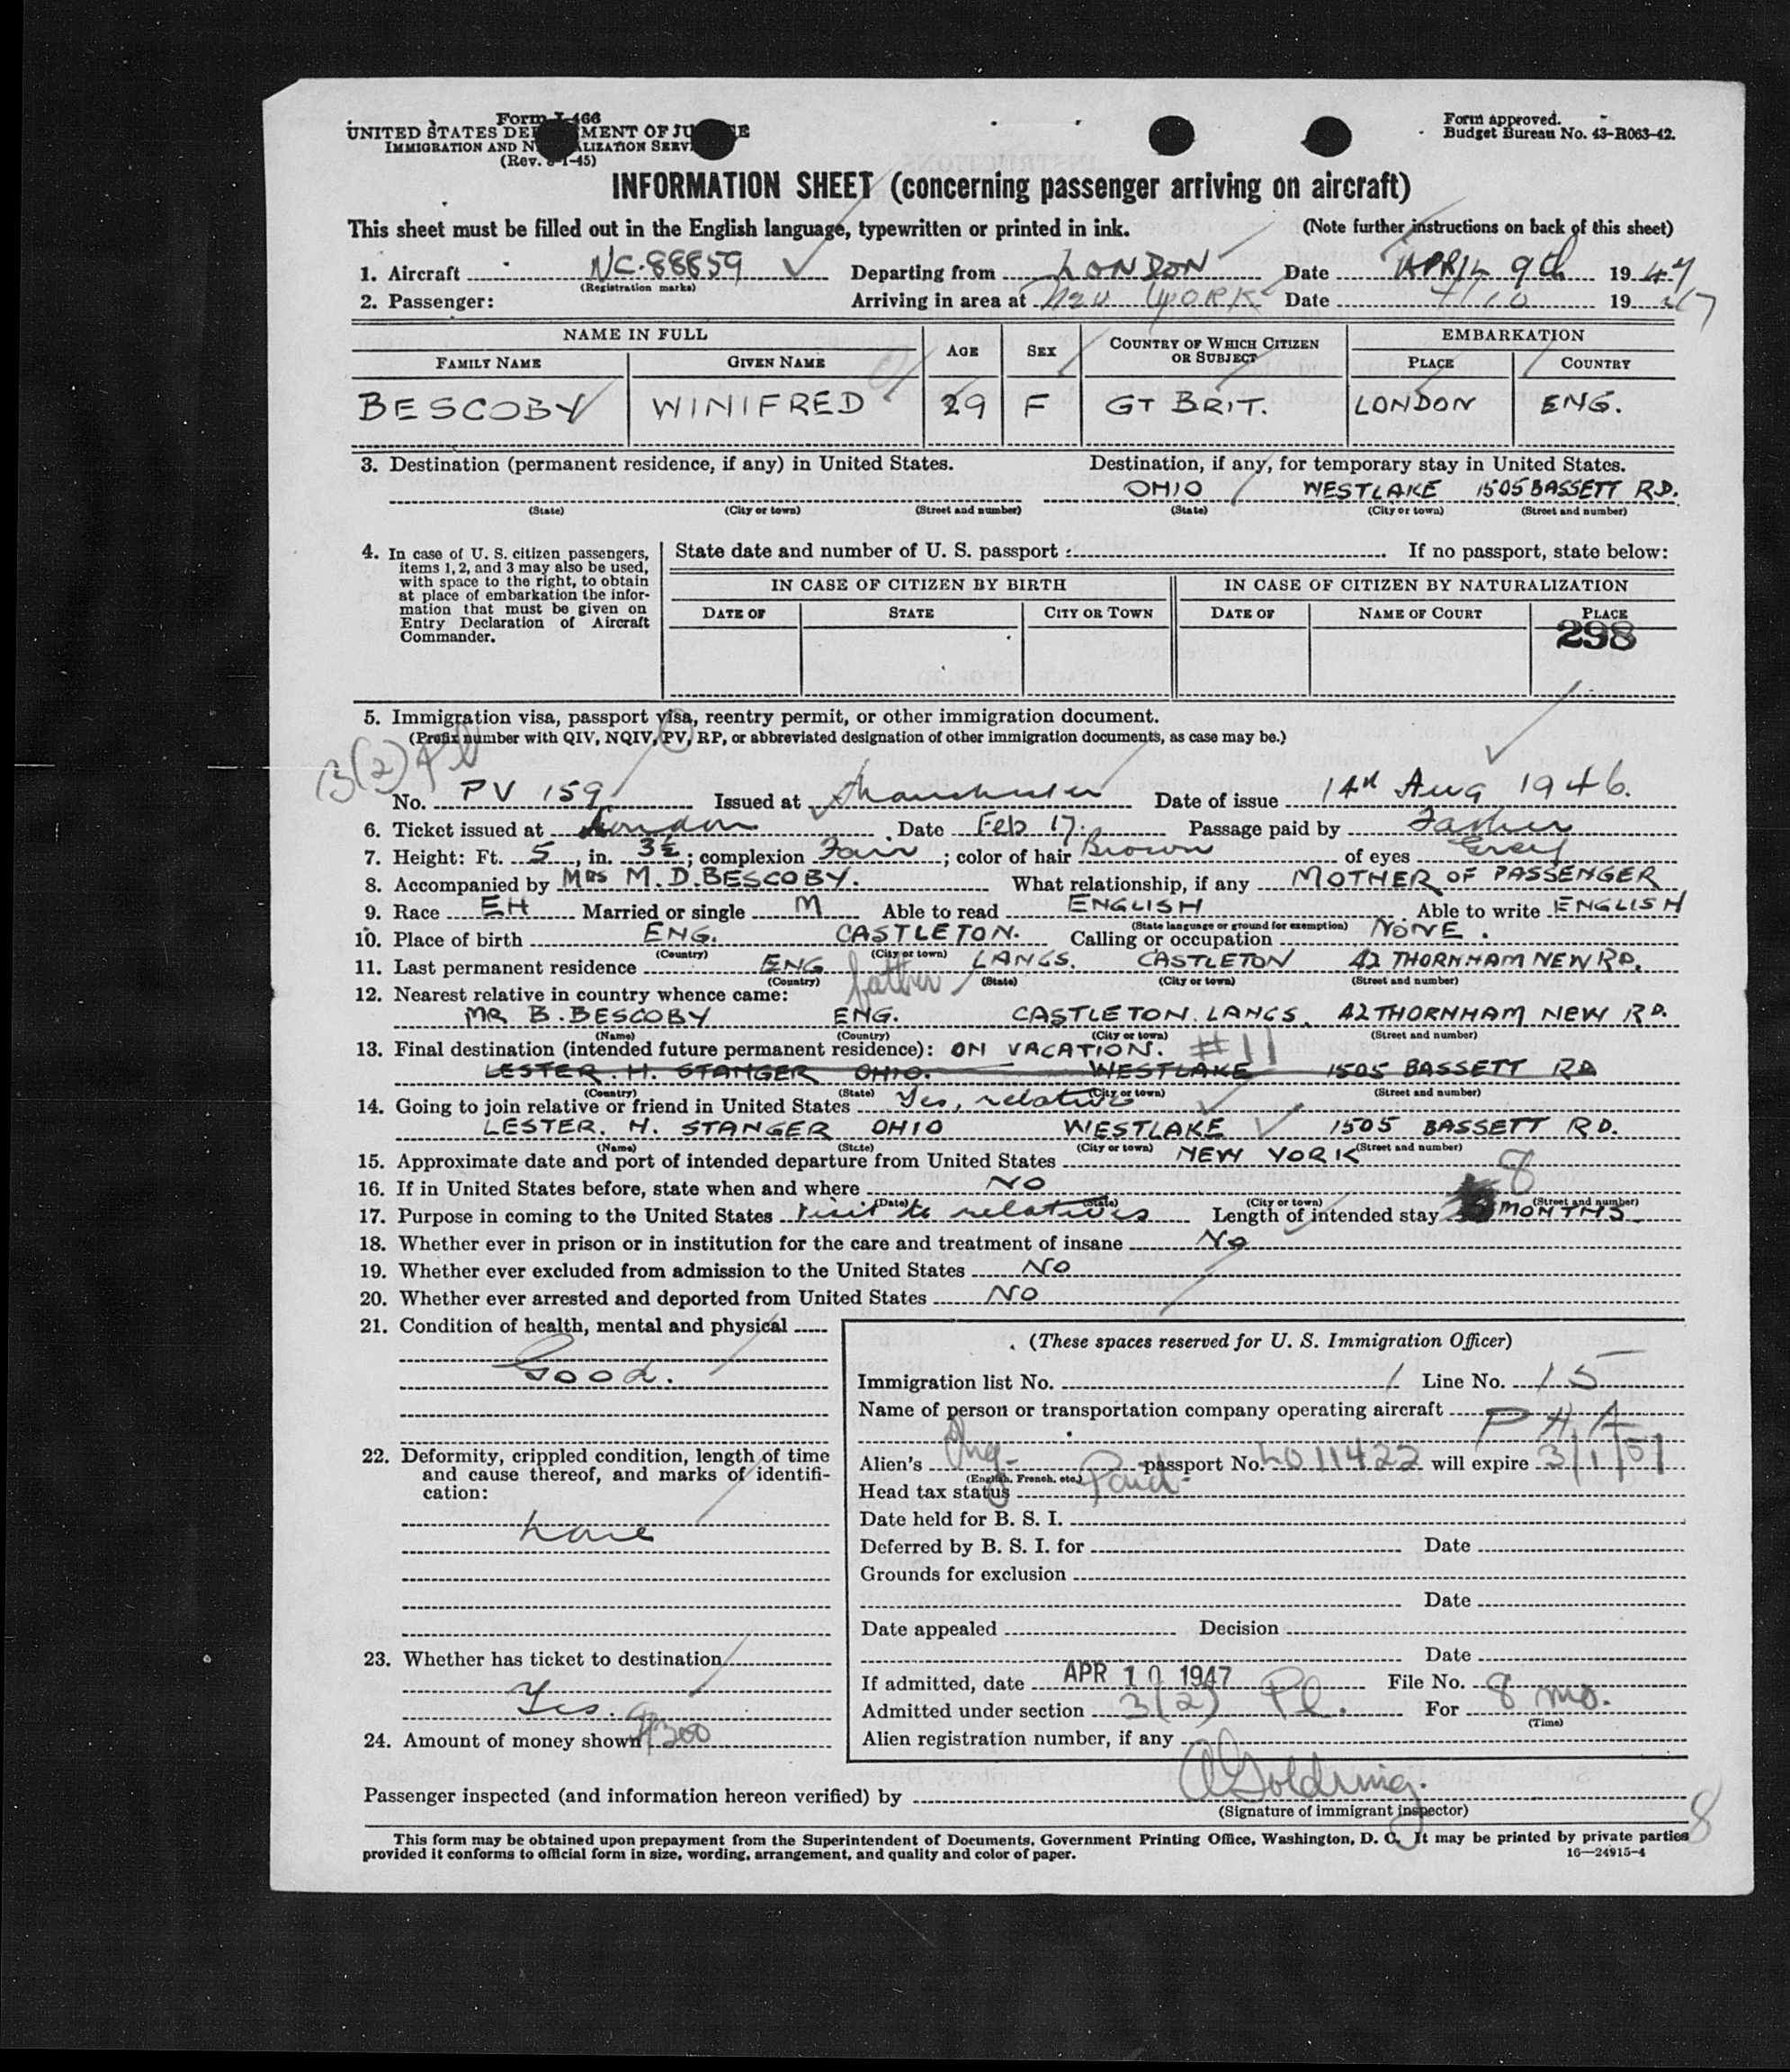 Form I-466
UNITED STATES DEPARTMENT OF JUSTICE
IMMIGRATION AND NATURALIZATION SERVICE
(Rev. 1-45)
Form approved.
Budget Bureau No. 43-R063-42.
INFORMATION SHEET (concerning passenger arriving on aircraft)
This sheet must be filled out in the English language, typewritten or printed in ink. (Note further instructions on back of this sheet)
1. Aircraft NC-88859 Departing from LONDON Date APRIL 9th 1947
(Registration marks)
2. Passenger: Arriving in area at New YORK Date 4/10 1947
NAME IN FULL AGE SEX COUNTRY OF WHICH CITIZEN OR SUBJECT EMBARKATION
FAMILY NAME GIVEN NAME PLACE COUNTRY
BESCOBY WINIFRED 29 F GT BRIT. LONDON ENG.
3. Destination (permanent residence, if any) in United States. Destination, if any, for temporary stay in United States.
OHIO WESTLAKE 1505 BASSETT RD.
(State) (City or town) (Street and number) (State) (City or town) (Street and number)
4. In case of U. S. citizen passengers, items 1, 2, and 3 may also be used, with space to the right, to obtain at place of embarkation the information that must be given on Entry Declaration of Aircraft Commander.
State date and number of U. S. passport : If no passport, state below:
IN CASE OF CITIZEN BY BIRTH IN CASE OF CITIZEN BY NATURALIZATION
DATE OF STATE CITY OR TOWN DATE OF NAME OF COURT PLACE
298
5. Immigration visa, passport visa, reentry permit, or other immigration document.
(Prefix number with QIV, NQIV, PV, RP, or abbreviated designation of other immigration documents, as case may be.)
3(2) Pl
No. PV 159 Issued at Manchester Date of issue 14th Aug 1946.
6. Ticket issued at London Date Feb 17. Passage paid by Father
7. Height: Ft. 5, in. 3½; complexion Fair; color of hair Brown of eyes Grey
8. Accompanied by MRS M.D. BESCOBY. What relationship, if any MOTHER OF PASSENGER
9. Race EH Married or single M Able to read ENGLISH Able to write ENGLISH
(State language or ground for exemption)
10. Place of birth ENG. CASTLETON. Calling or occupation NONE.
(Country) (City or town)
11. Last permanent residence ENG LANCS. CASTLETON 42 THORNHAM NEW RD.
(Country) (State) (City or town) (Street and number)
12. Nearest relative in country whence came: father
MR B. BESCOBY ENG. CASTLETON. LANCS. 42 THORNHAM NEW RD.
(Name) (Country) (City or town) (Street and number)
13. Final destination (intended future permanent residence): ON VACATION. #11
LESTER. H. STANGER OHIO. WESTLAKE 1505 BASSETT RD
(Country) (State) (City or town) (Street and number)
14. Going to join relative or friend in United States Yes, relative
LESTER. H. STANGER OHIO WESTLAKE 1505 BASSETT RD.
(Name) (State) (City or town) (Street and number)
15. Approximate date and port of intended departure from United States NEW YORK
16. If in United States before, state when and where NO
(Date) (State) (City or town) (Street and number)
17. Purpose in coming to the United States Visit to relatives Length of intended stay 8 MONTHS.
18. Whether ever in prison or in institution for the care and treatment of insane No
19. Whether ever excluded from admission to the United States NO
20. Whether ever arrested and deported from United States NO
21. Condition of health, mental and physical
Good.
22. Deformity, crippled condition, length of time and cause thereof, and marks of identification:
None
23. Whether has ticket to destination
Yes.
24. Amount of money shown $300
(These spaces reserved for U. S. Immigration Officer)
Immigration list No. 1 Line No. 15
Name of person or transportation company operating aircraft P A A
Alien's Eng- passport No. LO 11422 will expire 3/1/51
(English, French, etc.)
Head tax status Paid
Date held for B. S. I.
Deferred by B. S. I. for Date
Grounds for exclusion
Date
Date appealed Decision
Date
If admitted, date APR 10 1947 File No.
Admitted under section 3(2) Pl. For 8 mo.
(Time)
Alien registration number, if any
Passenger inspected (and information hereon verified) by Goldring.
(Signature of immigrant inspector)
8
This form may be obtained upon prepayment from the Superintendent of Documents, Government Printing Office, Washington, D. C. It may be printed by private parties
provided it conforms to official form in size, wording, arrangement, and quality and color of paper. 16—24915-4